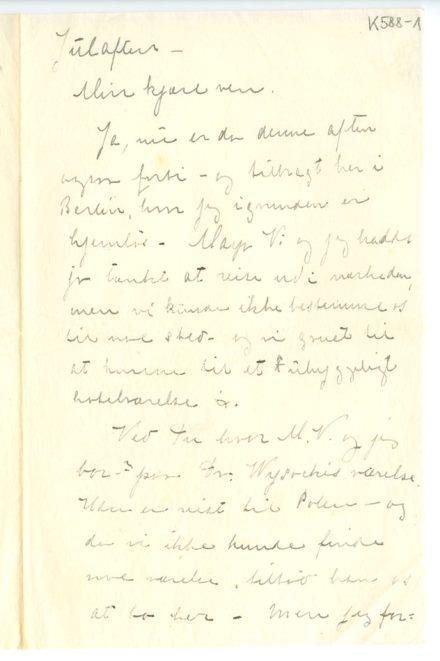 K588-1
Julaften –
Min kjære ven.
Ja, nu er da denne aften
ogsaa forbi – og tilbragt her i
Berlin, hvor jeg igrunden er
hjemløs – Mayr V. og jeg hadde
jo tænkt at reise ud i nærheden,
men vi kunde ikke bestemme os
til noe sted – og vi gruet til
at komme til et uhyggeligt
hotelværelse &.
Ved Du hvor M. V. og jeg
bor –? paa Dr. Wysockis værelse.
Han er reist til Polen – og
da vi ikke kunde finde
noe værelse, tilbød han os
at bo her – Men jeg for=